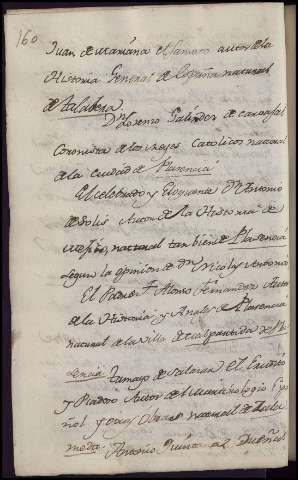 160
Juan de Mariana el famoso autor de la
Historia General de España natural
de Talabera.
Dn. Lorenzo Galindez de Caravajal
Coronista de los Reyes Catolicos natural
de la ciudad de Plasencia
El celebrado y Dn. Antonio
de Solis Autor de la Historia de
Mexico, natural tambien de Plasencia
segun la opinion de Dn. Nicolas Antonio
El Padre F. Alonso Fernandez Autor
de la Historia, y Anales de Plasencia
natural de la Villa de Malpartida de Pla-
sencia Tamayo de Salazar el Erudito
y Autor del Martirologio Espa
ñol y otras Obras natural de Zala
mea. Antonio